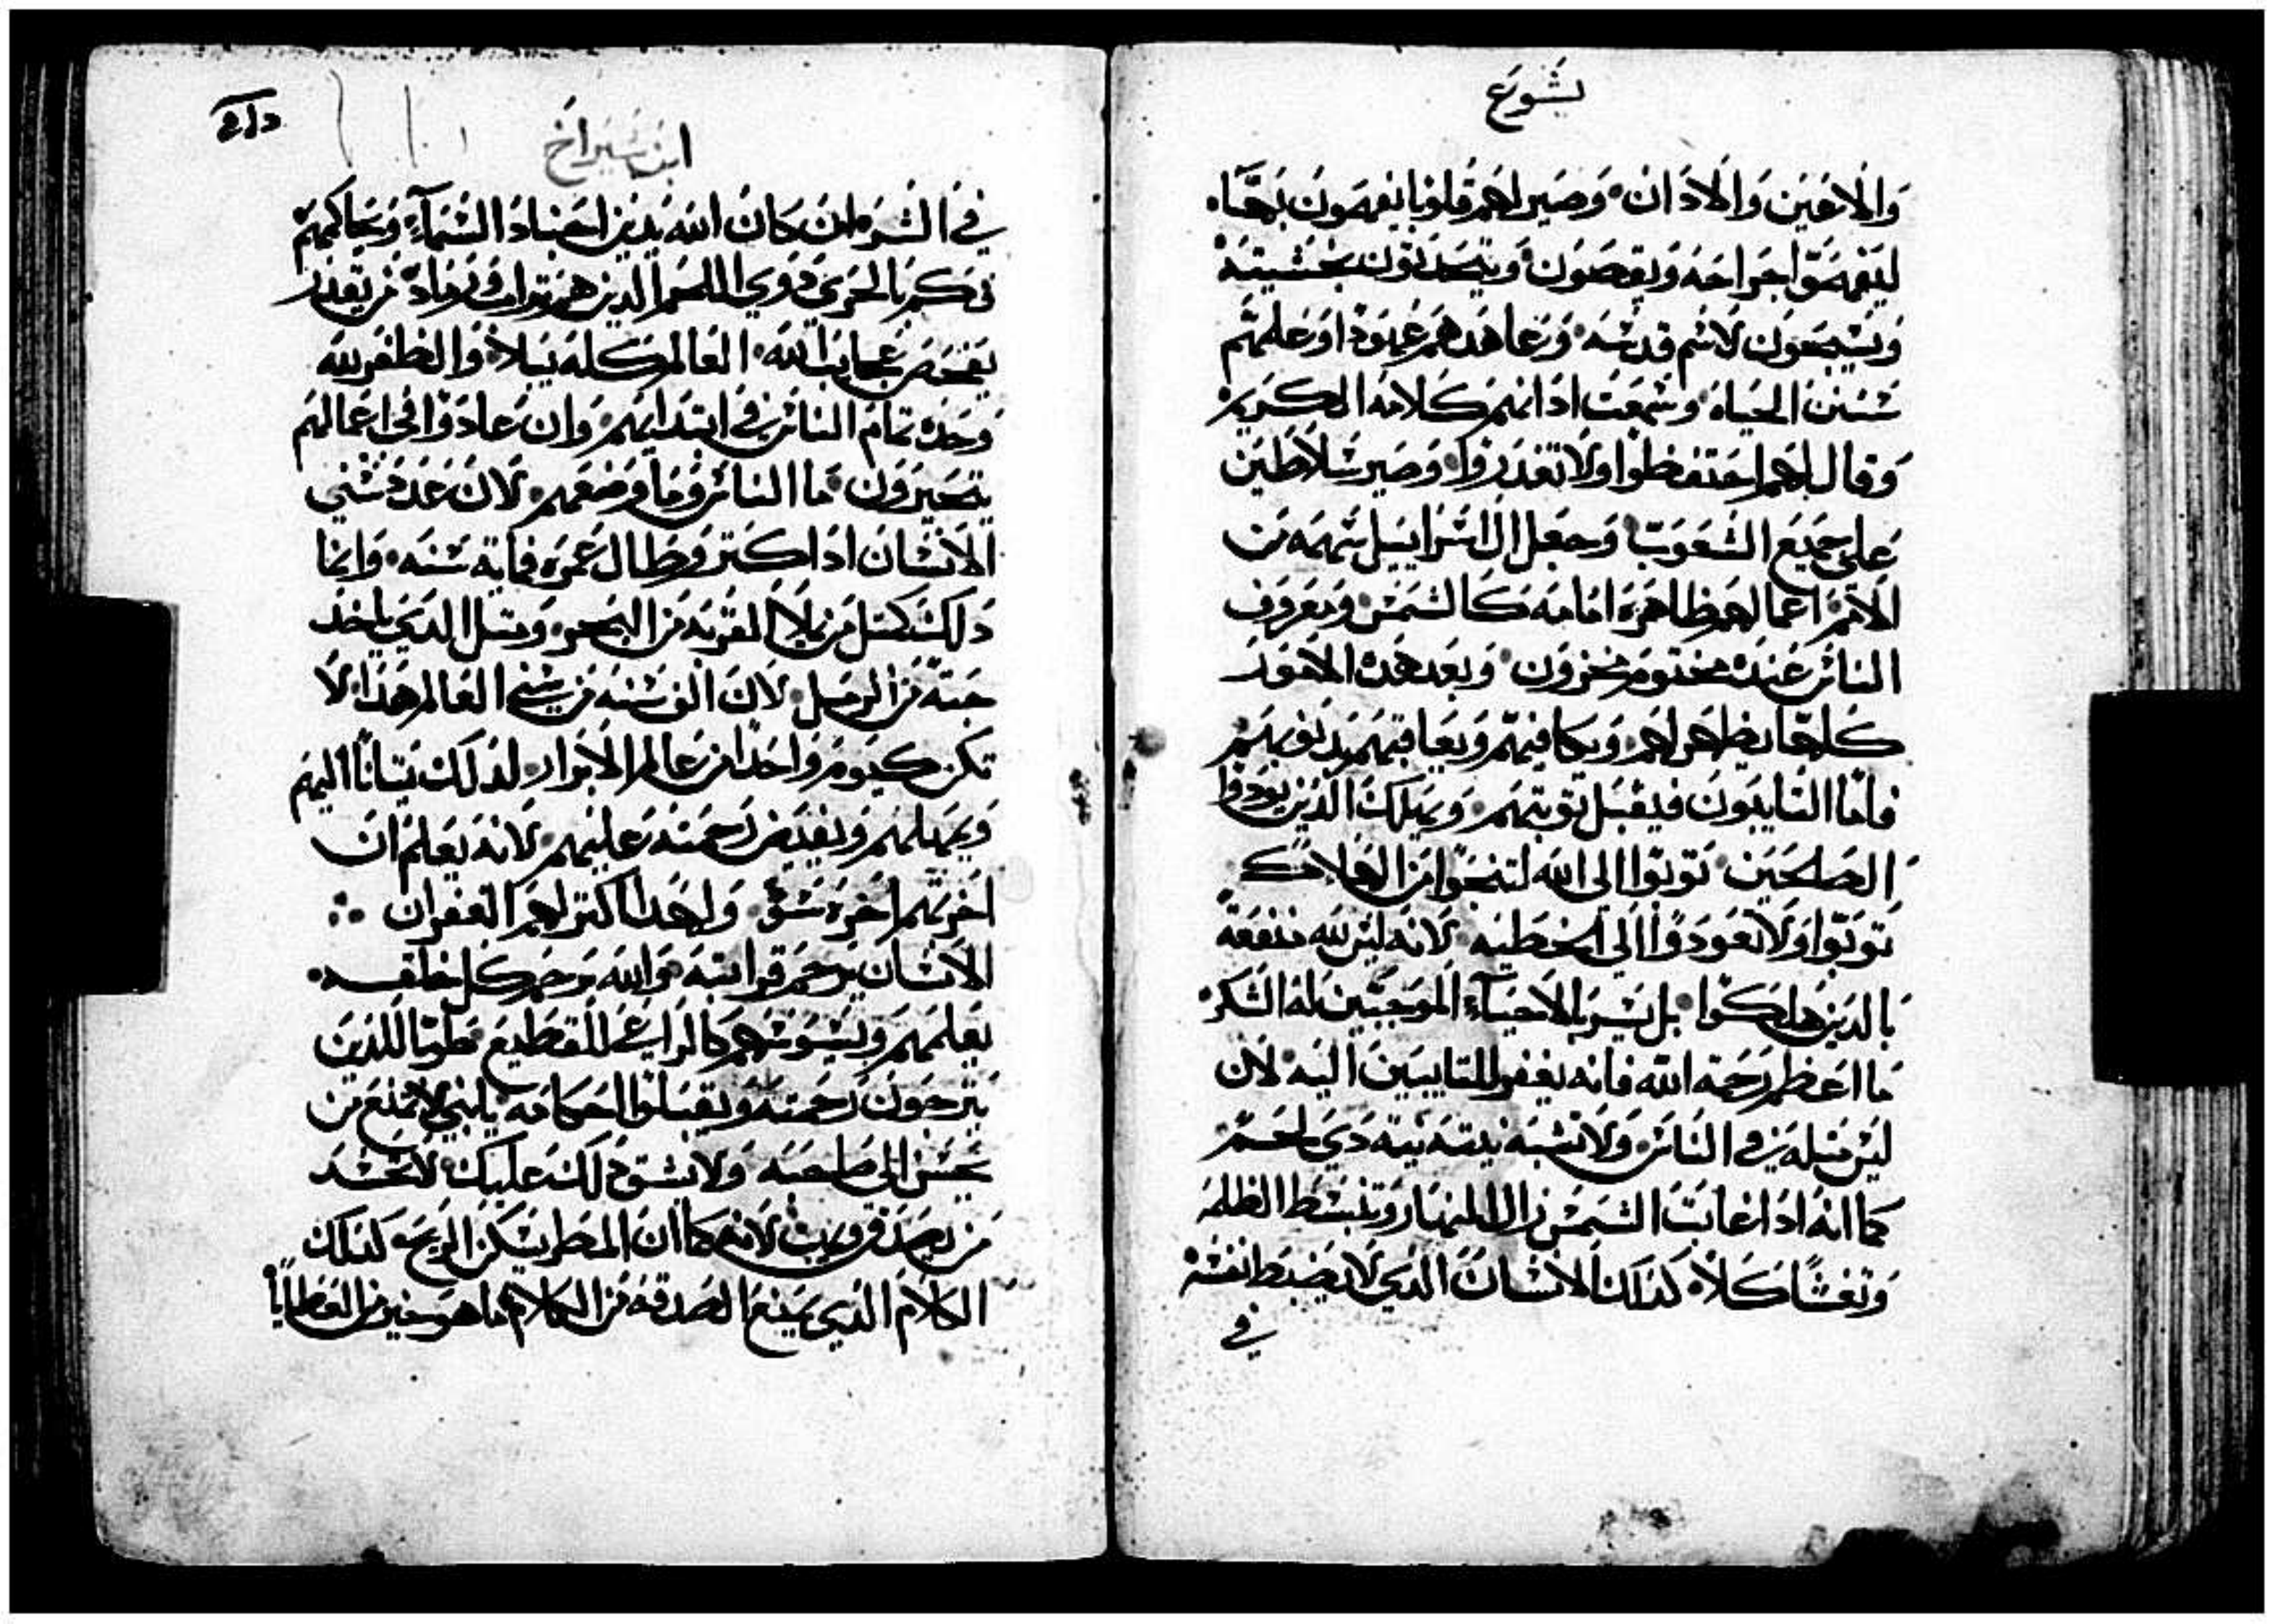 يشوع
والاعين والادان وصير لهم قلوبا يفهمون بها
ليفهموا جراحه ويقصون ويتحدتون بخشيته
ويسبحون لاسم قدسه وعاهدهم عهودا وعلمهم
سنن الحياه وسمعت ادانهم كلامه الكريم
وقال لهم احتفظوا ولا تغدروا وصير سلاطين
على جميع الشعوب وجعل ال اسراييل سهمه من
الامم اعمالهم ظاهره امامه كالشمس ومعروف
الناس عنده مختوم مخزون وبعد هده الامور
كلها يظهر لهم ويكافيهم ويعاقبهم بدنوبهم
فاما التايبون فيقبل توبتهم ويهلك الدين يودوا
الصلحين توبوا الى الله لتنجوا من الهلاك
توبوا ولا تعودوا الى الخطيه لانه ليس لله منفعه
بالدين هلكوا بل يسر بالاحياء الموجبين له الشكر
ما اعظم رحمة الله فانه يغفر للتايبين اليه لان
ليس مثله في الناس ولا تشبه نيته نية دي لحم
كما انه ادا غابت الشمس زال النهار وتنبسط الظلمه
وتغشا كلا كدلك الانسان الدي لا يضبط نفسه
في
ابن سيراخ
في الشر وان كان الله يدين اجناد السماء ويحاكمهم
فكم بالحري دوي اللحم الدين هم تراب ورماد من يقدر
يفحص عجايب الله العالم كله يبلا والظفر لله
وحده تمام الناس في ابتدايهم وان عادوا في اعمالهم
يتحيرون ما الناس وما وضعهم لان عدد سني
الانسان ادا كتر وطال عمره فماية سنه وانما
دلك كمثل من يملا القربه من البحر ومتل الدي ياخد
حبة من الرمل لان الف سنه من سني العالم هدا لا
تكن كيوم واحد من عالم الابرار لدلك يتانا اليهم
ويمهلهم ويفيض رحمته عليهم لانه يعلم ان
اخرتهم اخرة سو ولهدا اكتر لهم الغفران
الانسان يرحم قرابته والله يرحم كل خلقه
يعلمهم ويسوسهم كالراعي للقطيع طوبا للدين
يترجون رحمته ويقبلوا احكامه يابني لا تمنع من
يحسن الى صاحبه ولا يشق دلك عليك لا تحسد
من يصدق قريب لانه كما ان المطر يسكن الريح كدلك
الكلام الدي يمنع الصدقه من الكلام ما هو خير من العطايا